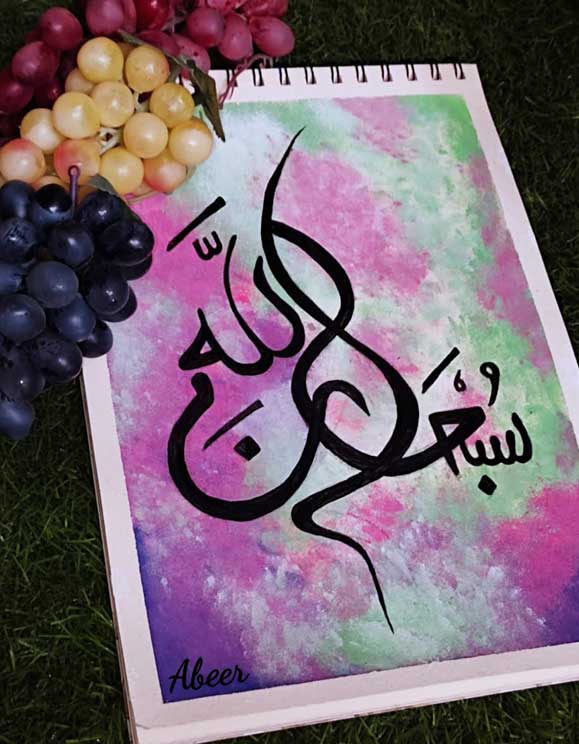 سُبْحَانَ اللَّه
Abeer